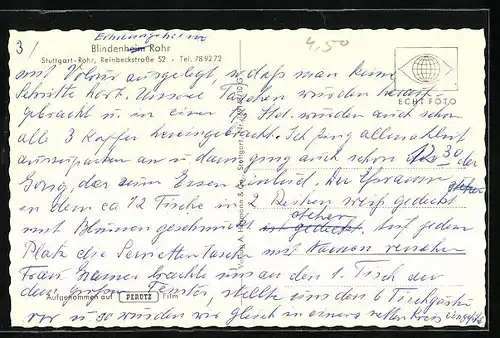 3)
Erholungsheim
4,50
Blindenheim Rohr
Stuttgart-Rohr, Reinbeckstraße 52 - Tel. 789272
mit Velour ausgelegt, sodaß man keine
Schritte hört. Unsere Taschen wurden
ECHT FOTO
gebracht u. in einer Std. wurden auch schon
alle 3 Koffer hereingebracht. Ich fing allmählich
auszupacken an u. dann ging auch schon 12 30 der
Gong, der zum Essen einlud. Der Eßraum
in dem ca 12 Tische in 2 Reihen stehen weiß gedeckt
mit Blumen geschmückt ist gedeckt. Auf jedem
Platz die Serviettentasche mit Namen versehen
Frau brachte uns an den 1. Tisch der
dem großen Fenster, stellte uns den 6 Tischgästen
Aufgenommen auf PERUTZ Film
vor u. so wurden wir gleich in einem netten Kreis